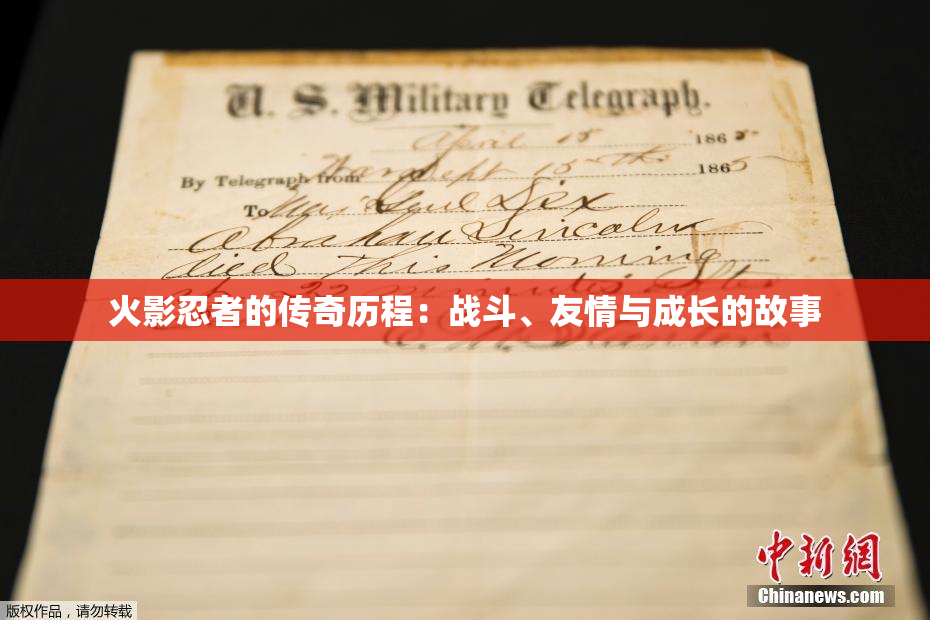 U. S. Military Telegraph.
April 15 1865
By Telegraph from War Dept 15th 1865
To Maj Genl Dix
Abraham Lincoln
died This Morning
at 22 minutes after
火影忍者的传奇历程：战斗、友情与成长的故事
E. M. Stanton
中新网
Chinanews.com
版权作品，请勿转载